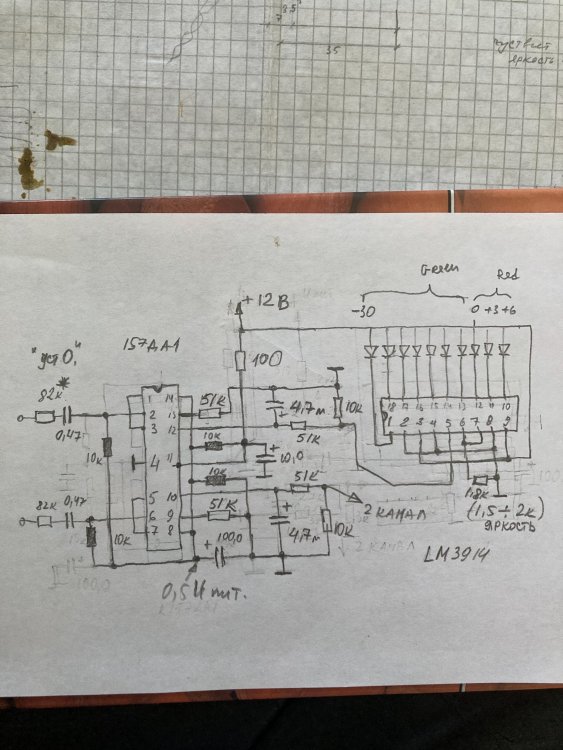 3.5
7
35
чуствит
яркость
Green
Red
-30
0 +3 +6
+12 В
"уст 0"
157ДА1
100
82к*
0,47
1 14
2 13
3 12
4 11
5 10
6 9
7 8
51к
10к
4,7м
51к
10к
10к
10к
10,0
18 17 16 15 14 13 12 11 10
1 2 3 4 5 6 7 8 9
51к
82к
0,47
51к
10к
2 КАНАЛ
1,8к
(1,5÷2к)
ЯРКОСТЬ
10к
100,0
4,7м
0,5 U пит.
LM3914